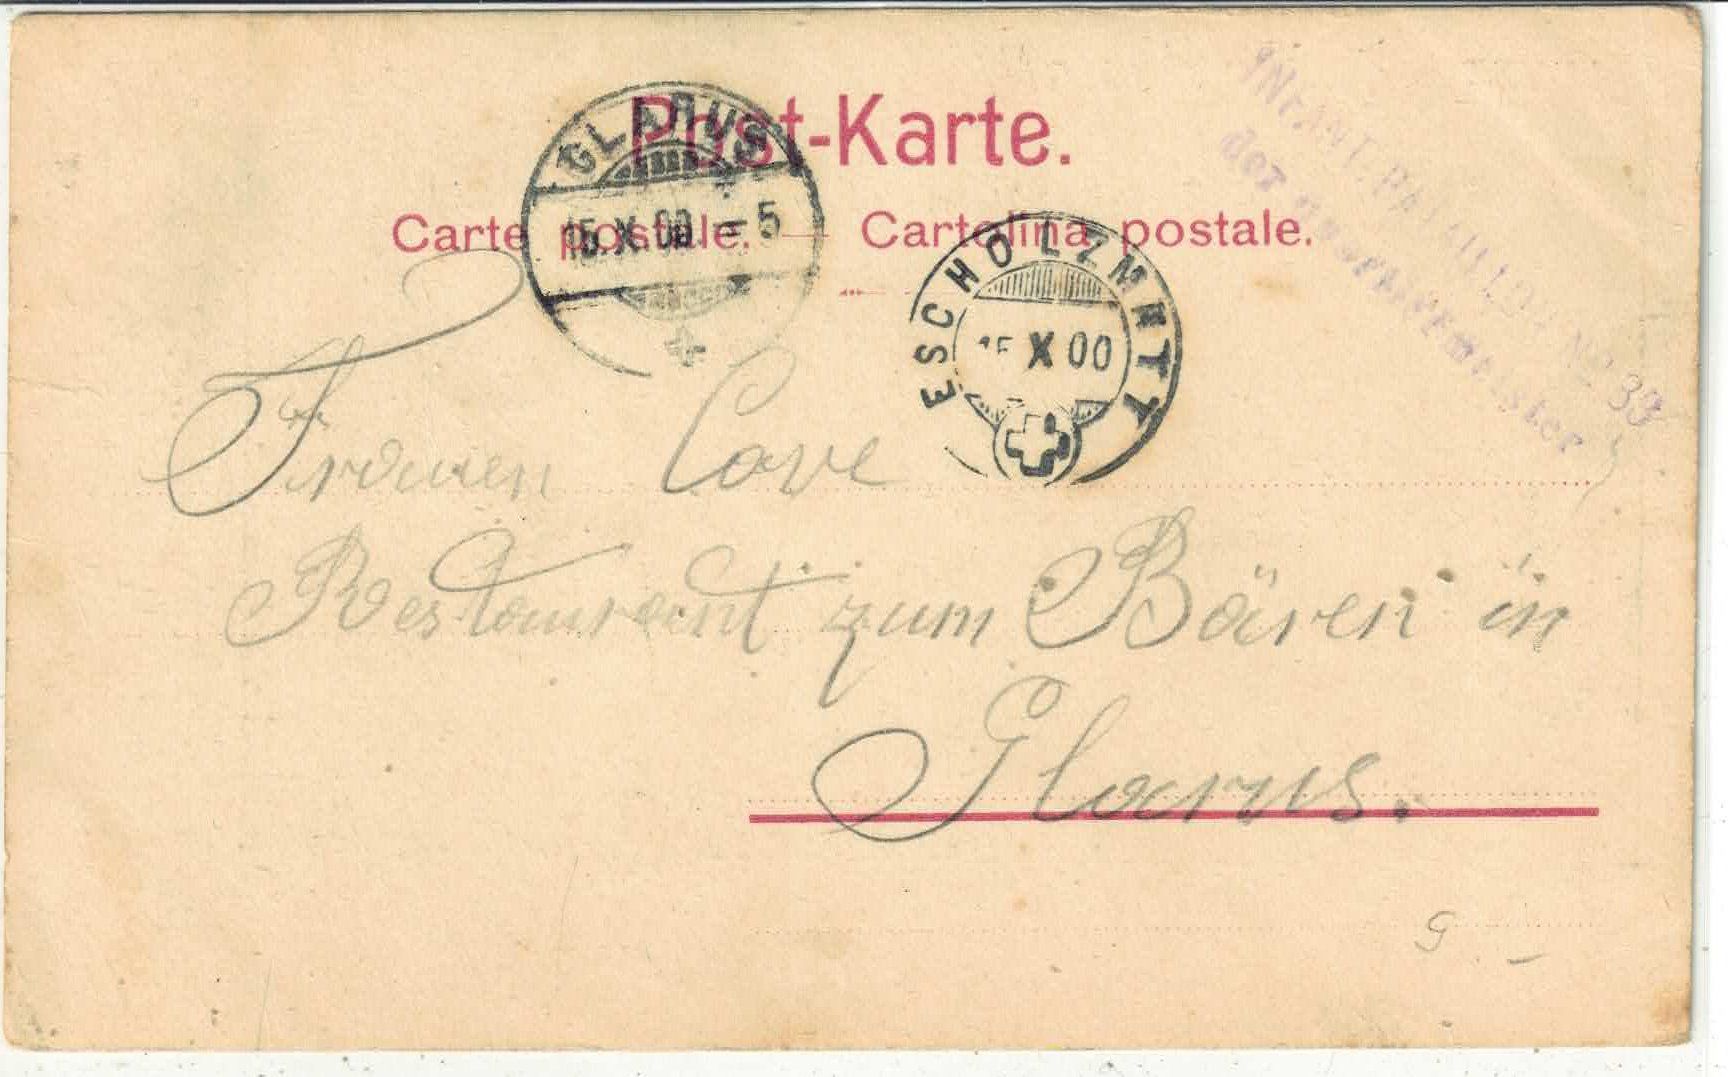 Post-Karte.
Carte postale. — Cartolina postale.
GLARUS
15.X.00. – 5
ESCHOLZMNTT
15 X 00
INFANT. BATAILLON Nº 33
der Quartiermeister
Frauen Cave
Restaurant zum Bären in
Glarus.